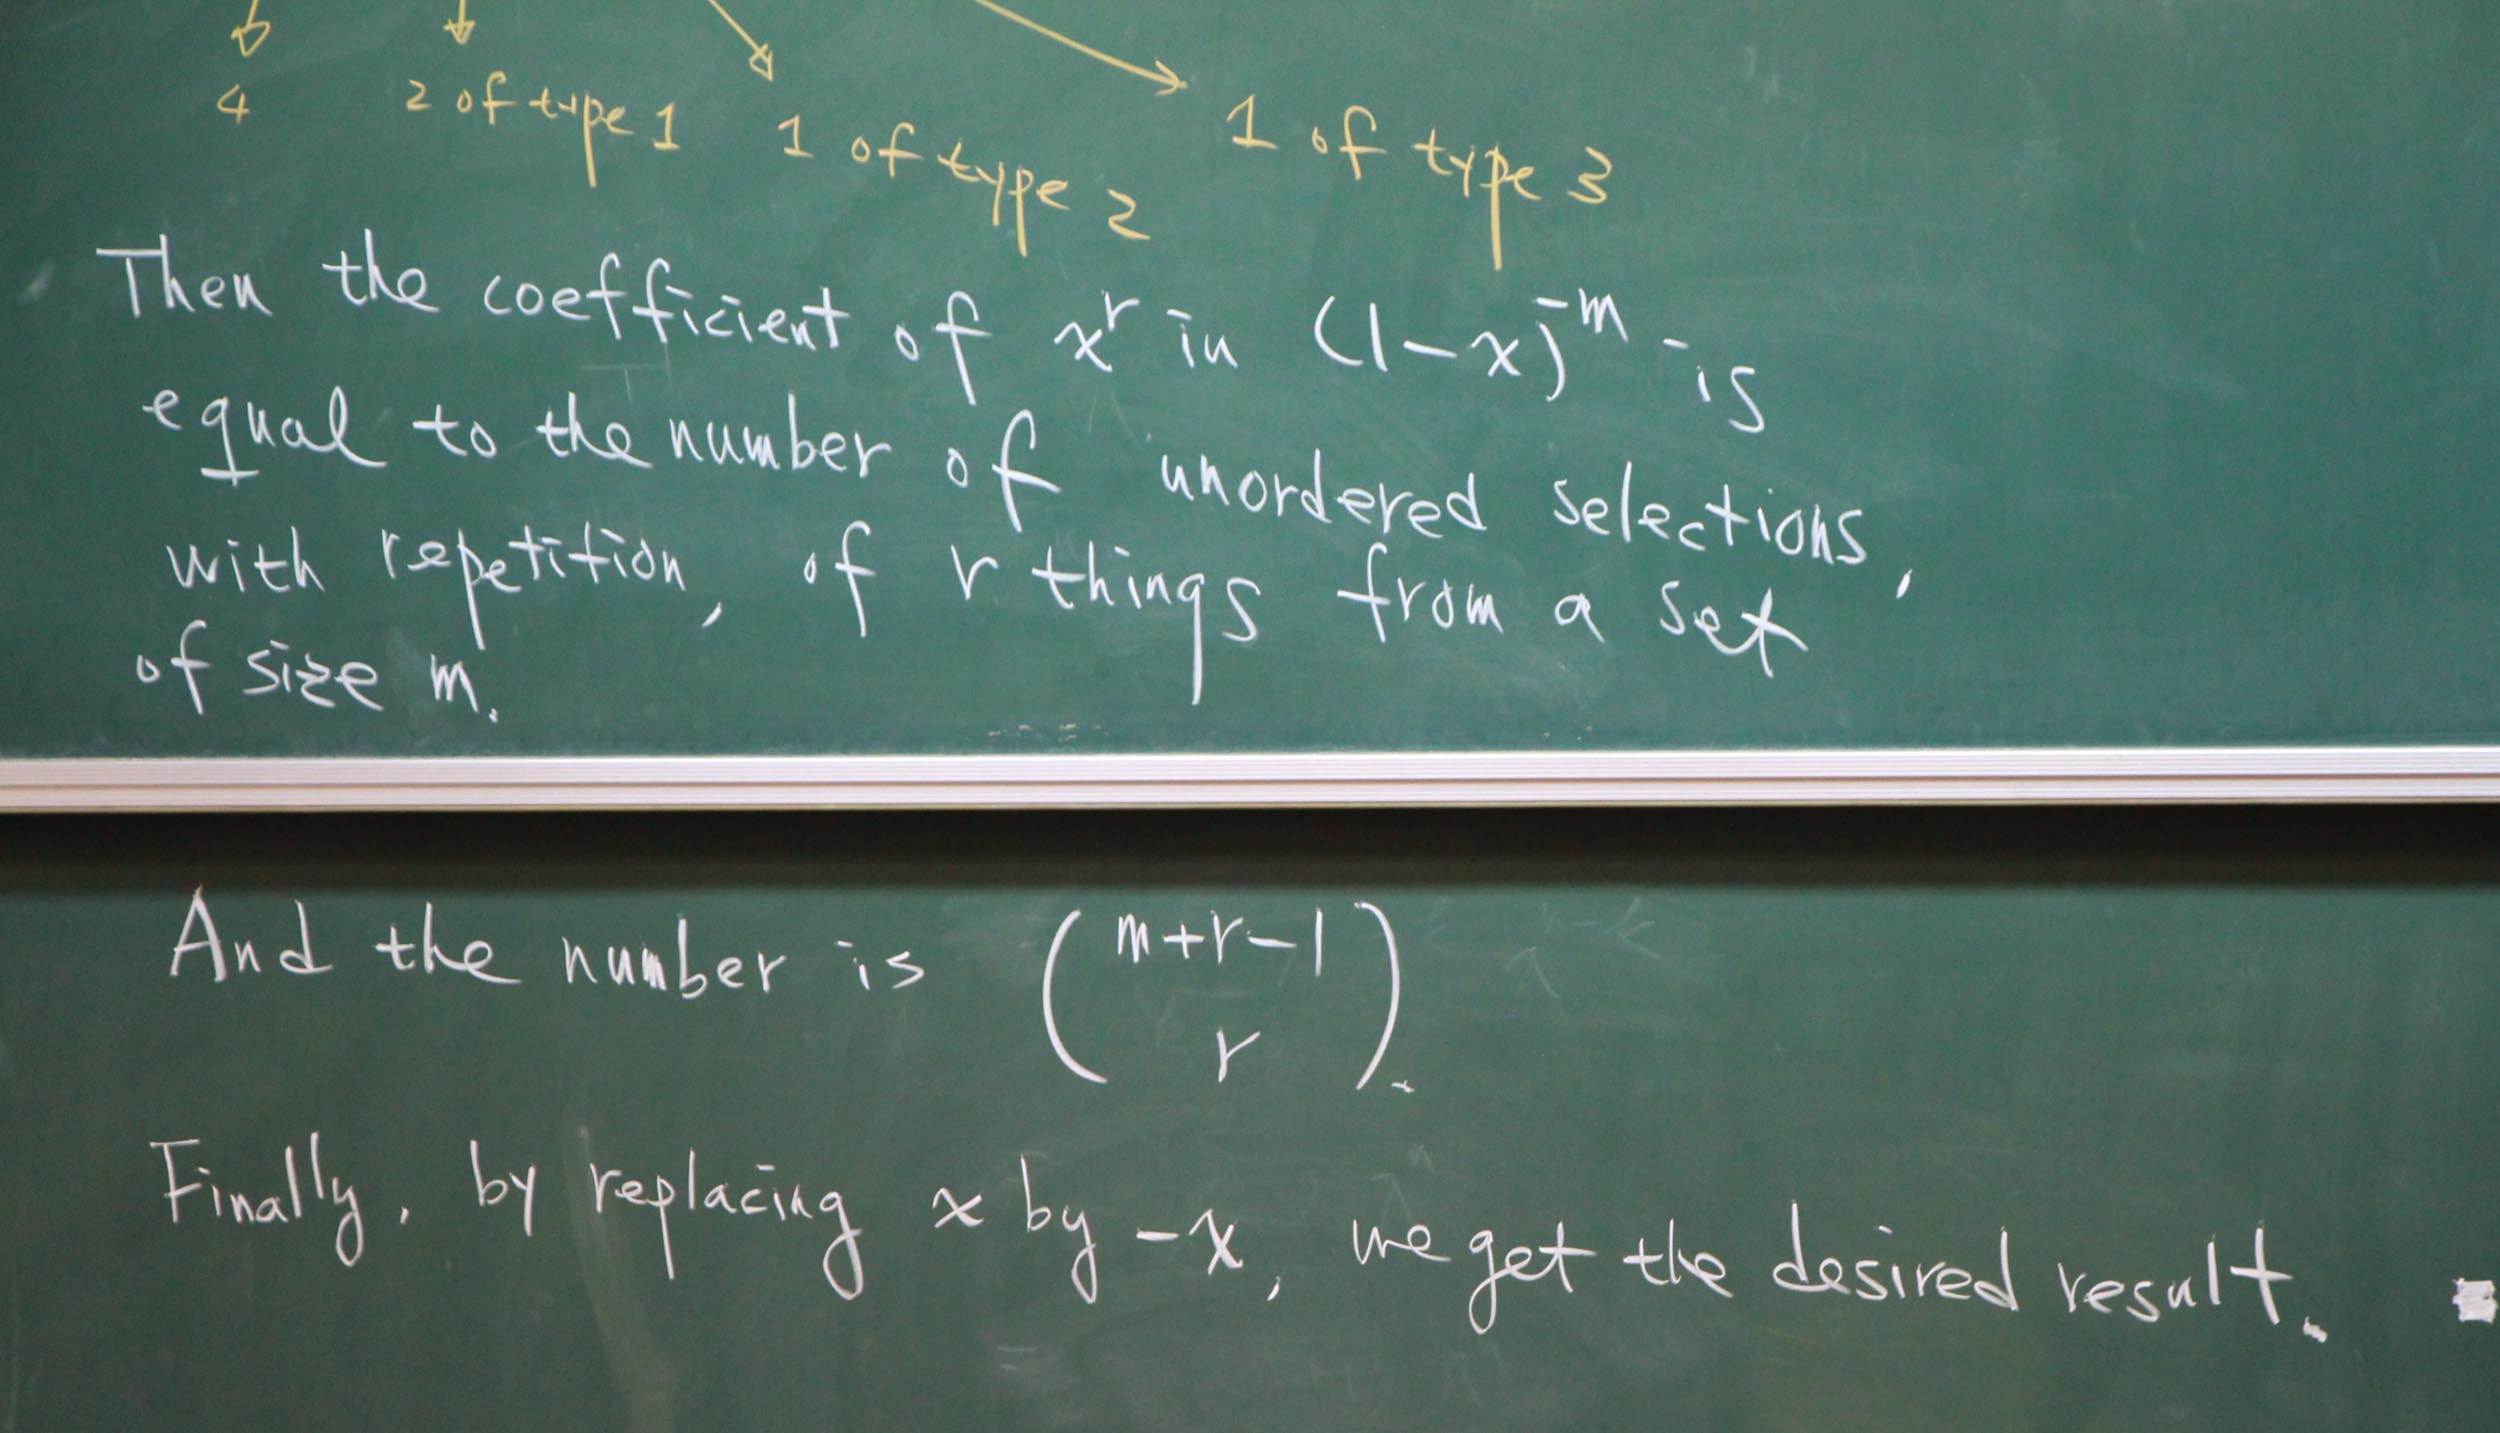 4 2 of type 1 1 of type 2 1 of type 3
Then the coefficient of x^r in (1-x)^-m is
equal to the number of unordered selections,
with repetition, of r things from a set
of size m.
And the number is (m+r-1
r).
Finally, by replacing x by -x, we get the desired result.